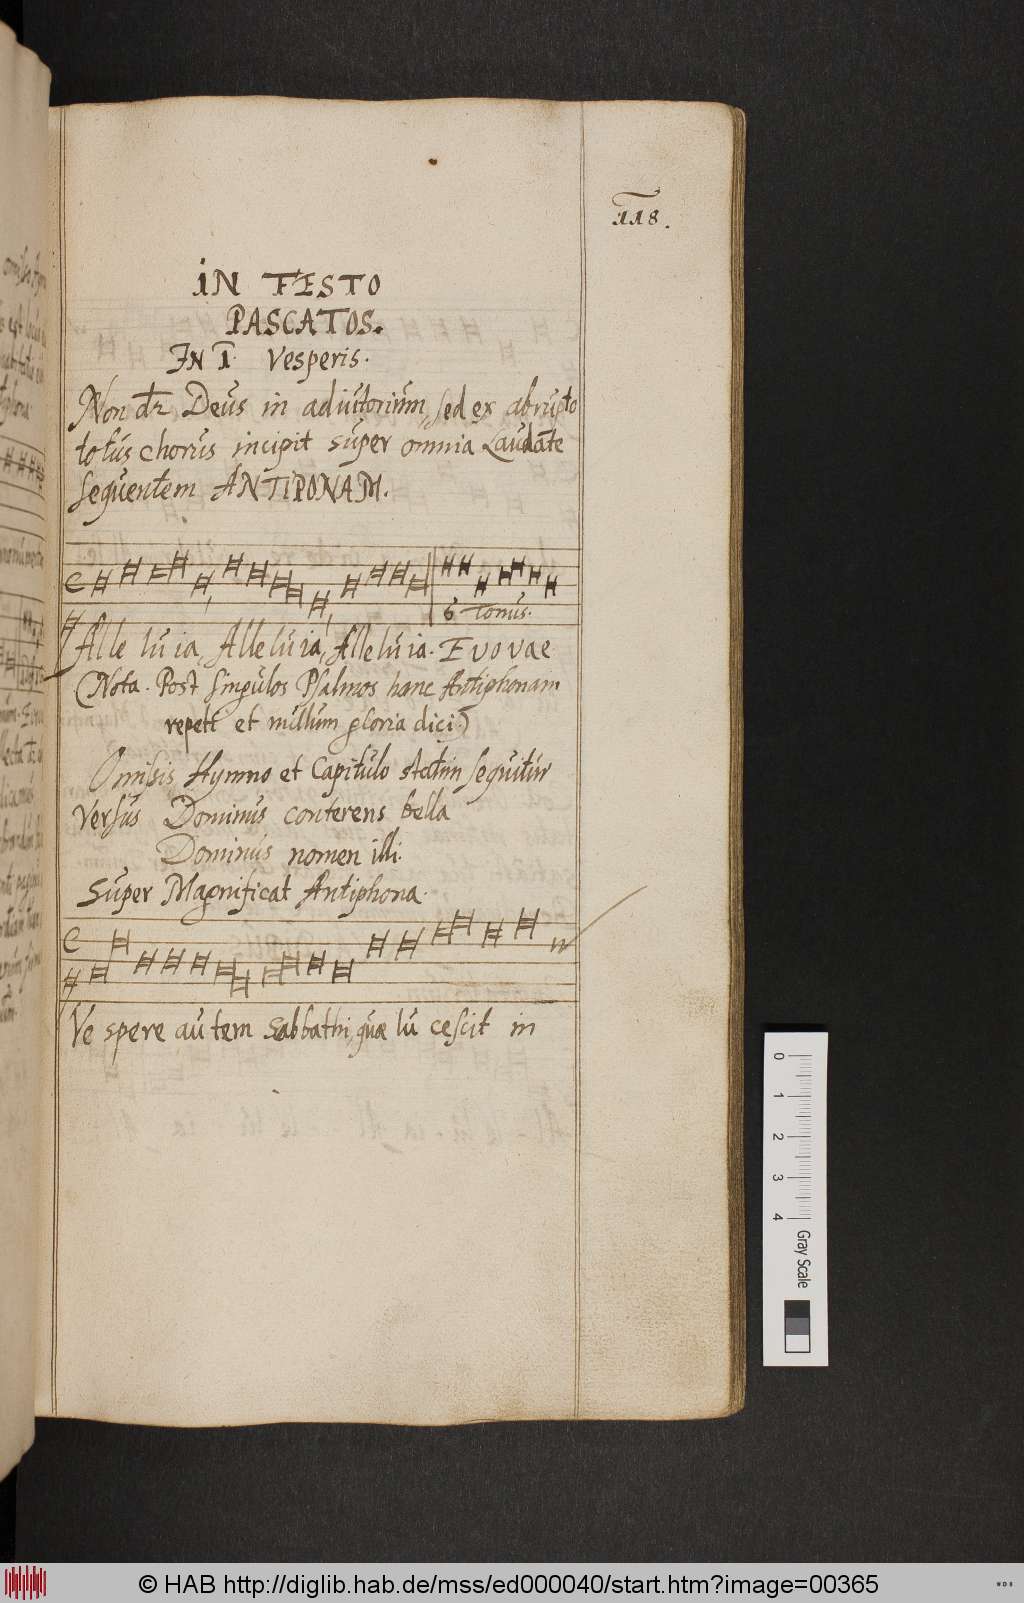 118.
IN FESTO
PASCATOS.
IN I. Vesperis.
Non dr Deus in adiutorium, sed ex abrupto
totus chorus incipit super omnia Laudate
sequentem ANTIPONAM.
6 Tonus.
Alle lu ia, Alle lu ia, Alle lu ia. E v o v a e
(Nota. Post singulos Psalmos hanc Antiphonam
repeti et nullum gloria dici.)
Omissis Hymno et Capitulo statim sequitur
Versus Dominus conterens bella
Dominus nomen illi.
Super Magnificat Antiphona.
Ve spere au tem Sabbathi, quæ lu cescit in
0 1 2 3 4 Gray Scale
© HAB http://diglib.hab.de/mss/ed000040/start.htm?image=00365